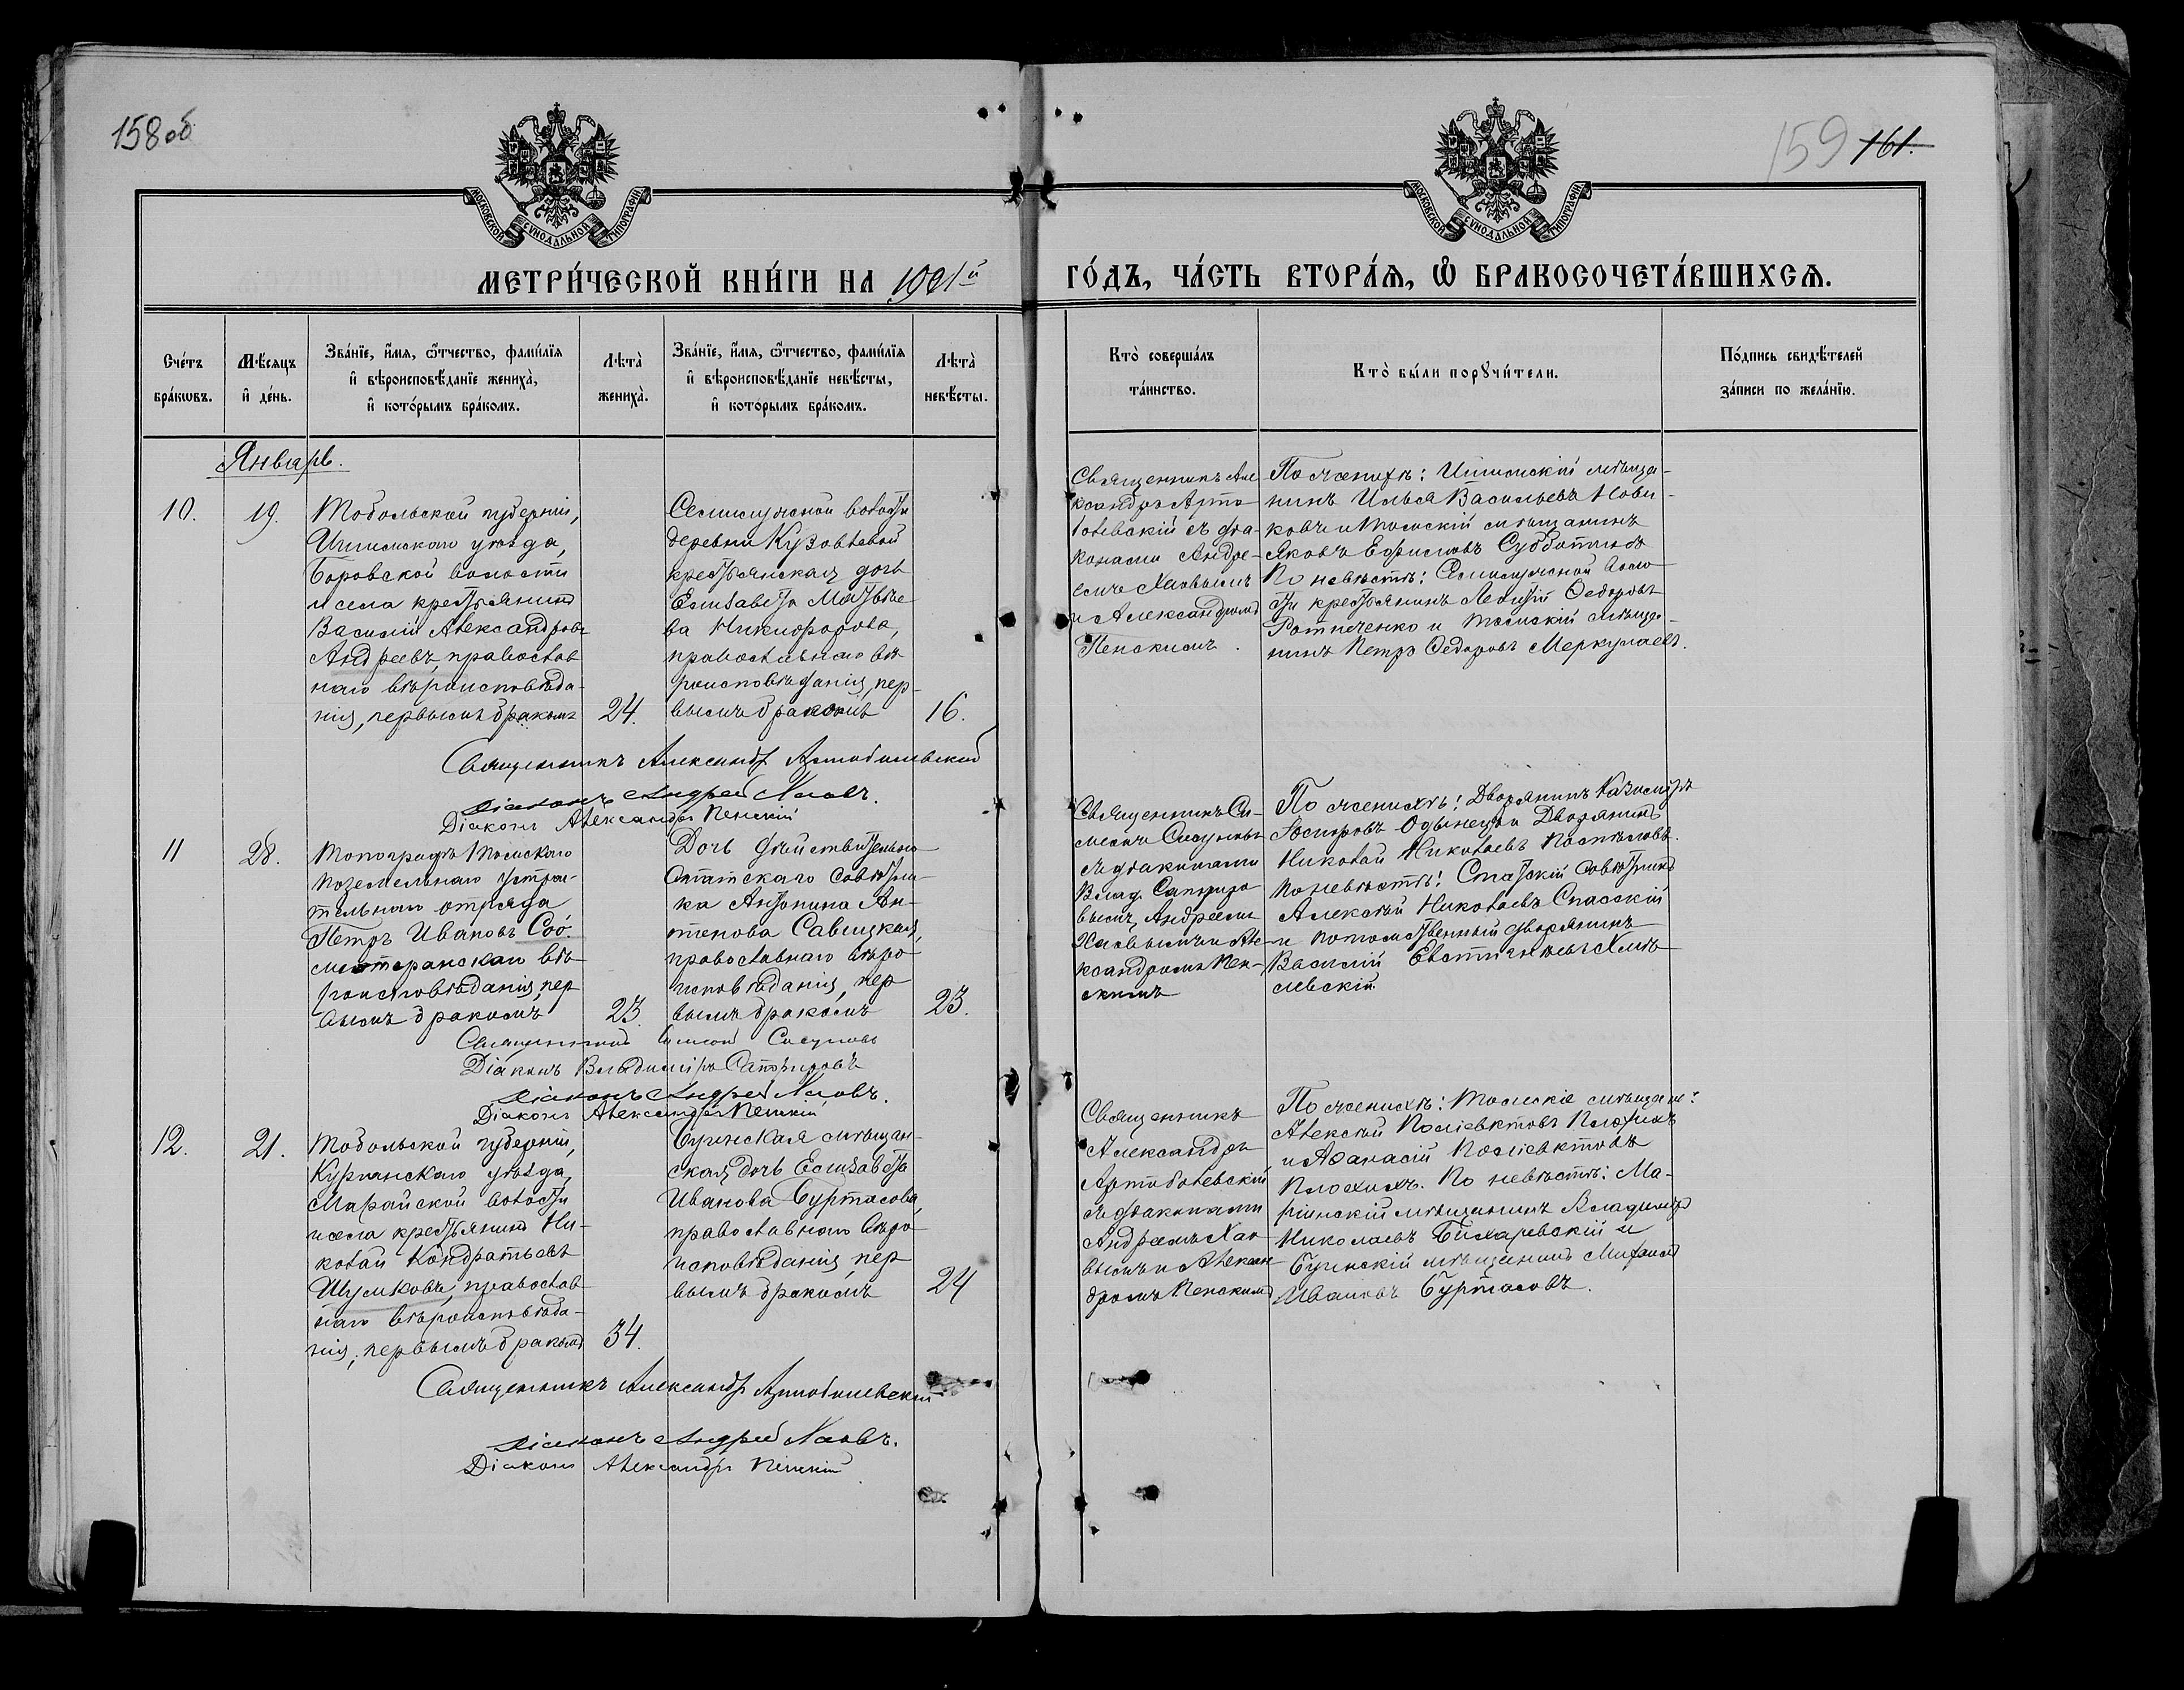 158 об
159 161.
МОСКОВСКОЙ СѴНОДАЛЬНОЙ ТИПОГРАФІИ
МОСКОВСКОЙ СѴНОДАЛЬНОЙ ТИПОГРАФІИ
МЕТРИ́ЧЕСКОЙ КНИ́ГИ НА 1901й
ГО́ДЪ, ЧА́СТЬ ВТОРА́Я, Ѡ БРАКОСОЧЕТА́ВШИХСЯ.
Сче́тъ
бра́ковъ.
Мѣ́сяцъ
и де́нь.
Зва́нїе, и́мя, ѻ́тчество, фами́лїя
и вѣроисповѣ́данїе жениха̀,
и кото́рымъ бра́комъ.
Лѣта̀
жениха̀.
Зва́нїе, и́мя, ѻ́тчество, фами́лїя
и вѣроисповѣ́данїе невѣ́сты,
и кото́рымъ бра́комъ.
Лѣта̀
невѣ́сты.
Кто̀ соверша́лъ
та́инство.
Кто̀ бы́ли порꙋчи́тели.
По́дпись свидѣ́телей
за́писи по жела́нїю.
Январь.
10.
19.
Тобольской губерніи,
Ишимскаго уѣзда,
Боровской волости
и села крестьянинъ
Василій Александровъ
Андреевъ, православ
наго вѣроисповѣда-
нія, первымъ бракомъ
24.
Семилужной волости
деревни Кузовлевой
крестьянская дочь
Елизавета Матвѣе
ва Никифорова,
православнаго вѣ-
роисповѣданія, пер-
вымъ бракомъ
16.
Священникъ Але
ксандръ Арто
болевскій съ діа-
конами Андре-
емъ Хаовымъ
и Александромъ
Пенскимъ.
По женихѣ: Ишимскій мѣща-
нинъ Илья Васильевъ Нови-
ковъ и Томскій мѣщанинъ
Яковъ Ефимовъ Субботинъ
По невѣстѣ: Семилужной воло
сти крестьянинъ Леонтій Ѳедоровъ
и Томскій мѣща-
нинъ Петръ Ѳедоровъ Меркулаевъ.
Священникъ Александръ Артоболевскій
Діаконъ Андрей Хаовъ.
Діаконъ Александръ Пенскій
11
28.
Топографъ Томскаго
поземельнаго устрои-
тельнаго отряда
Петръ Ивановъ Соо́-
лютеранскаго вѣ-
роисповѣданія, пер
вымъ бракомъ
23.
Дочь дѣйствительнаго
Статскаго Совѣтни-
ка Антонина Ан-
тонова Савицкая,
православнаго вѣро
исповѣданія, пер
вымъ бракомъ
23.
Священникъ Си-
меонъ Сосуновъ
съ діаконами
Влад. Сапфиро
вымъ, Андреемъ
Хаовымъ и Але-
ксандромъ Пен-
скимъ
По женихѣ: Дворянинъ Казиміръ
Іосифовъ Одынецъ и Дворянинъ
Николай Николаевъ
По невѣстѣ: Статскій Совѣтникъ
Алексѣй Николаевъ Спасскій
и потомственный дворянинъ
Василій Евстигнѣевъ Хмѣ
левскій.
Священникъ Симеонъ Сосуновъ
Діаконъ Владиміръ Сапфировъ
Діаконъ Андрей Хаовъ.
Діаконъ Александръ Пенскій
12.
21.
Тобольской губерніи,
Курганскаго уѣзда,
Марайской волости
и села крестьянинъ Ни-
колай Кондратьевъ
Шумковъ, православ
наго вѣроисповѣда-
нія, первымъ бракомъ
34.
Бугинская мѣщан-
ская дочь Елизавета
Иванова Бурмасова,
православнаго вѣро
исповѣданія, пер
вымъ бракомъ
24
Священникъ
Александръ
Артоболевскій
съ діаконами
Андреемъ Хао
вымъ и Алексан
дромъ Пенскимъ
По женихѣ: Томскіе мѣщане:
Алексѣй Поліевктовъ Плохихъ
и Аѳанасій Поліевктовъ
Плохихъ. По невѣстѣ: Ма-
ріинскій мѣщанинъ Владиміръ
Николаевъ Бихаревскій и
Бугинскій мѣщанинъ Михаилъ
Ивановъ Бурмасовъ.
Священникъ Александръ Артоболевскій
Діаконъ Андрей Хаовъ.
Діаконъ Александръ Пенскій